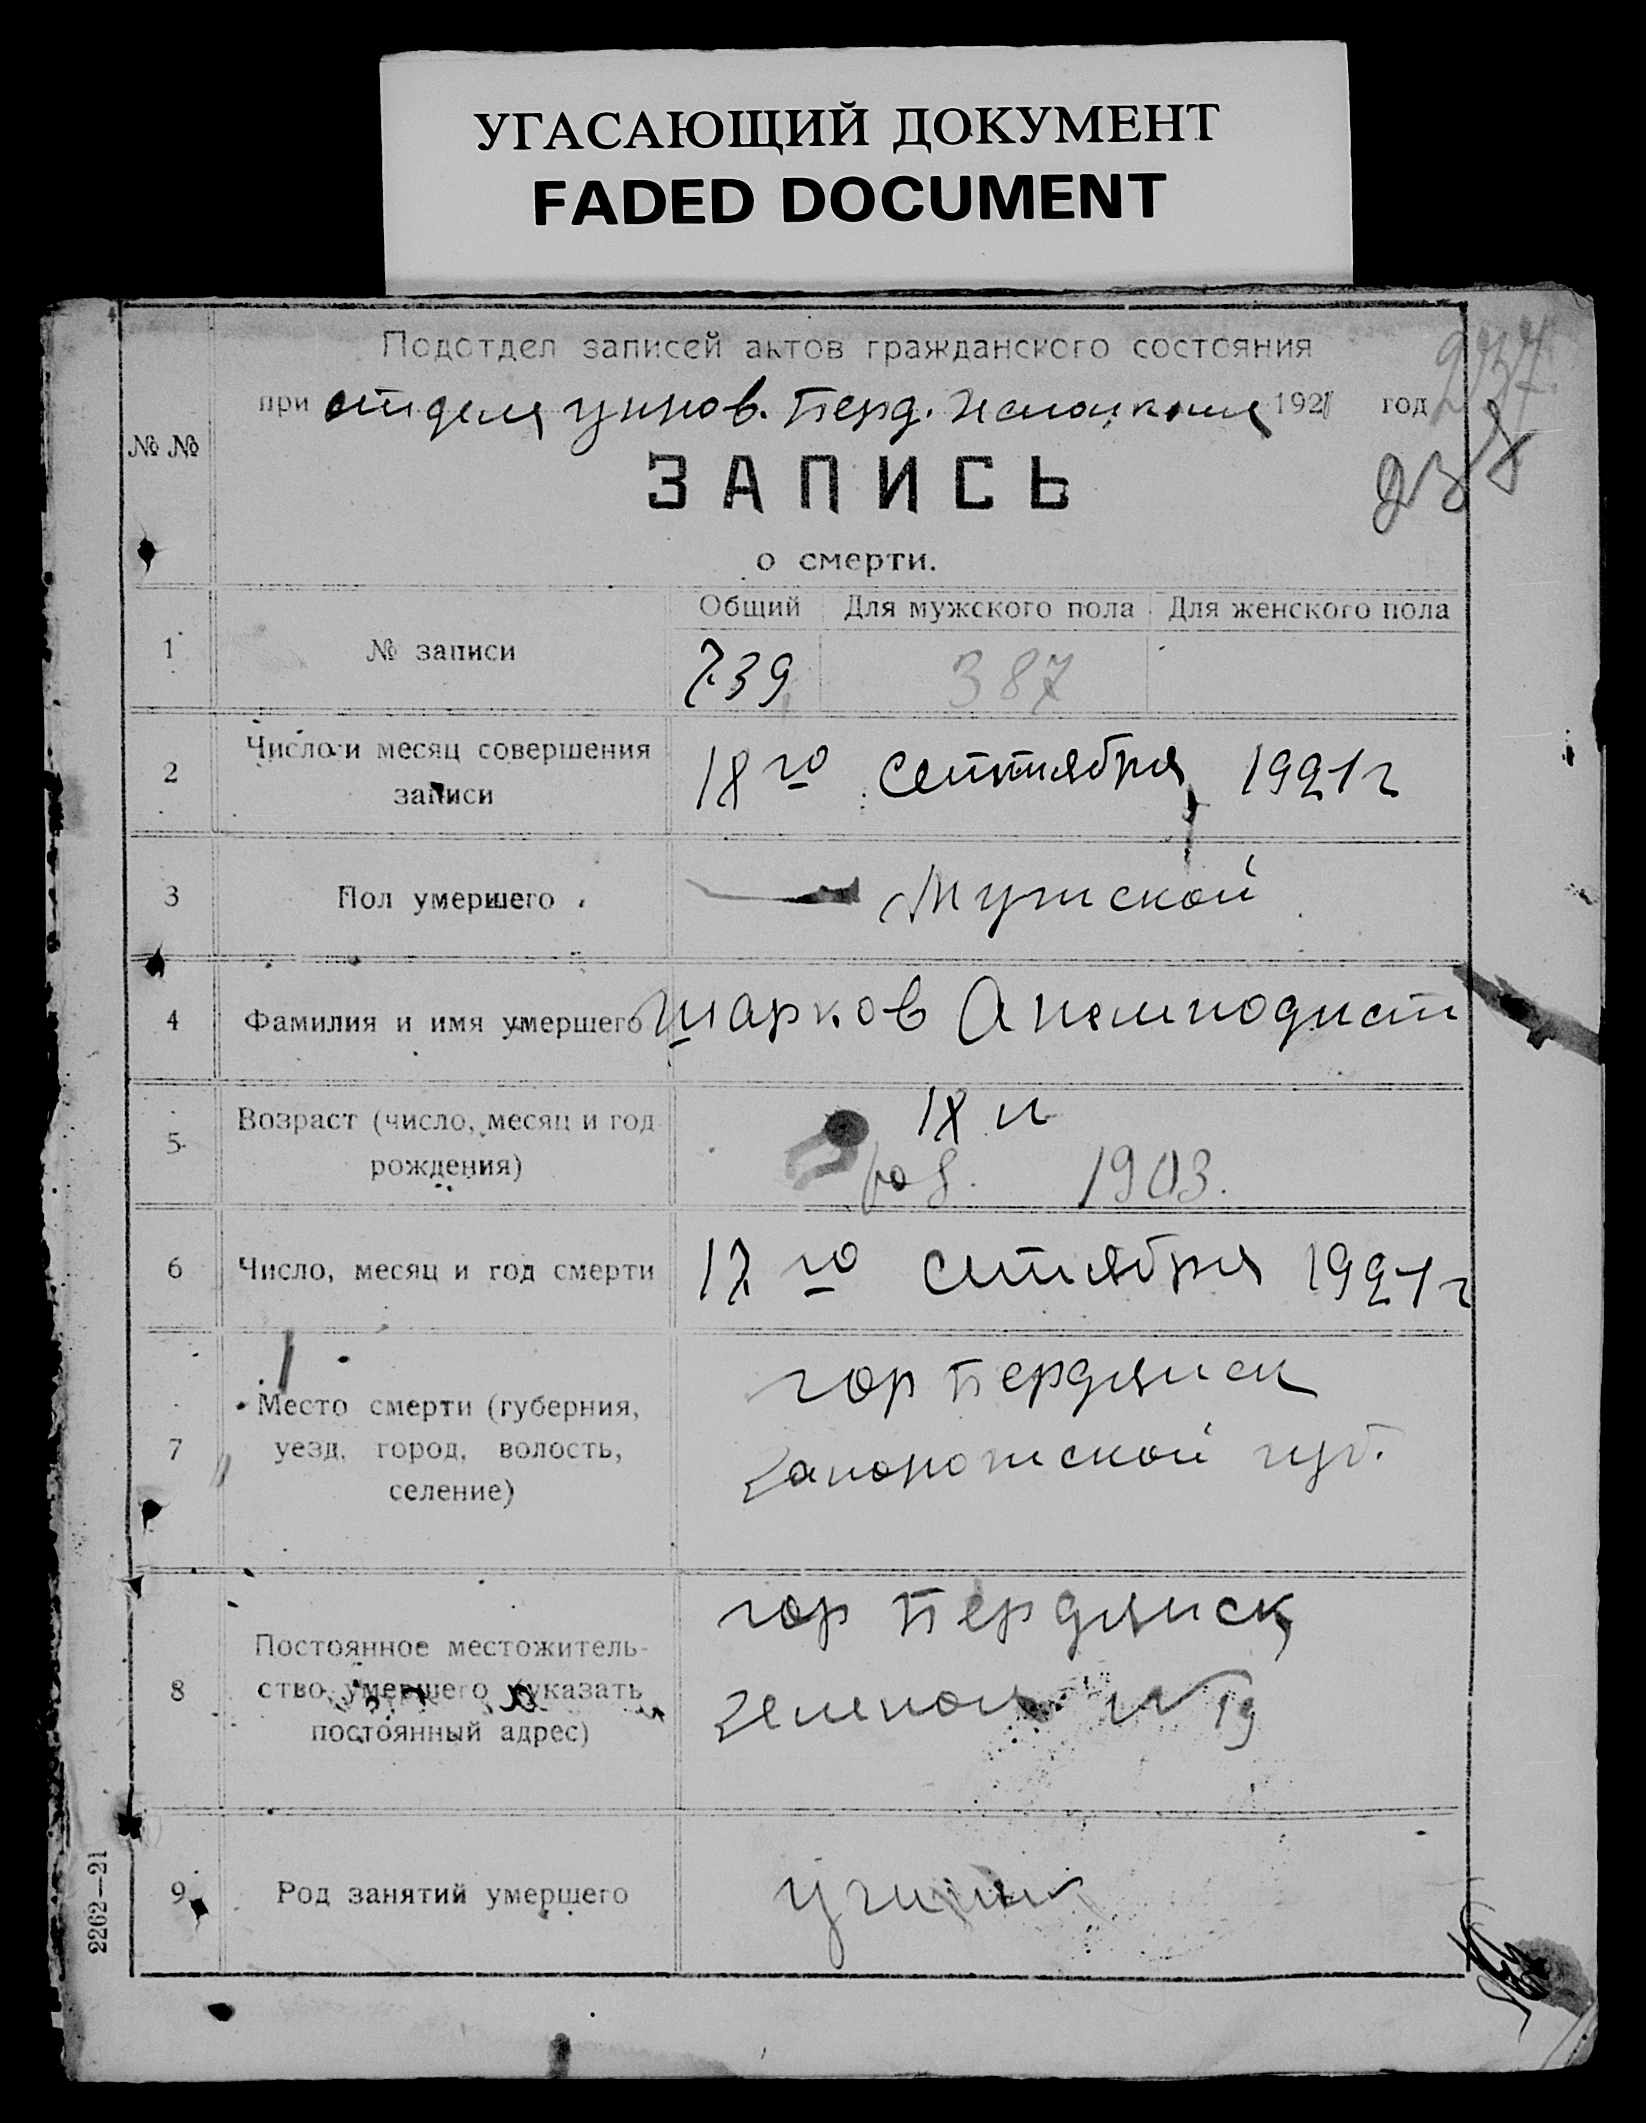 УГАСАЮЩИЙ ДОКУМЕНТ
FADED DOCUMENT
Подотдел записей актов гражданского состояния
237
при отдела управ. Берд. исполкома 1921 год
238
№ №
ЗАПИСЬ
о смерти.
Общий Для мужского пола Для женского пола
1 № записи 739 387
2 Число и месяц совершения записи 18го сентября 1921 г
3 Пол умершего Мужской
4 Фамилия и имя умершего Шарков Анемподист
5 Возраст (число, месяц и год рождения) 18 л
род. 1903.
6 Число, месяц и год смерти 17го сентября 1921 г
7 Место смерти (губерния, уезд, город, волость, селение) гор Бердянск
Запорожской губ.
8 Постоянное местожитель-
ство умершего (указать
постоянный адрес) гор Бердянск
19
9 Род занятий умершего
2262—21